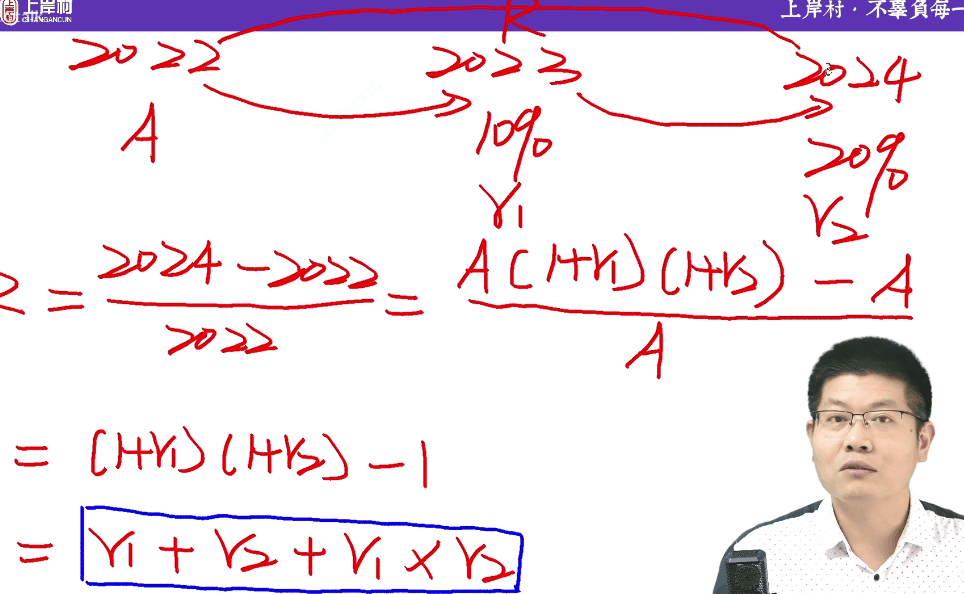 上岸村 SHANGANCUN 上岸村·不辜負每一
R
2022 2023 2024
A 10% 20%
r₁ r₂
= (2024-2022)/2022 = (A(1+r₁)(1+r₂)-A)/A
= (1+r₁)(1+r₂)-1
= r₁+r₂+r₁×r₂